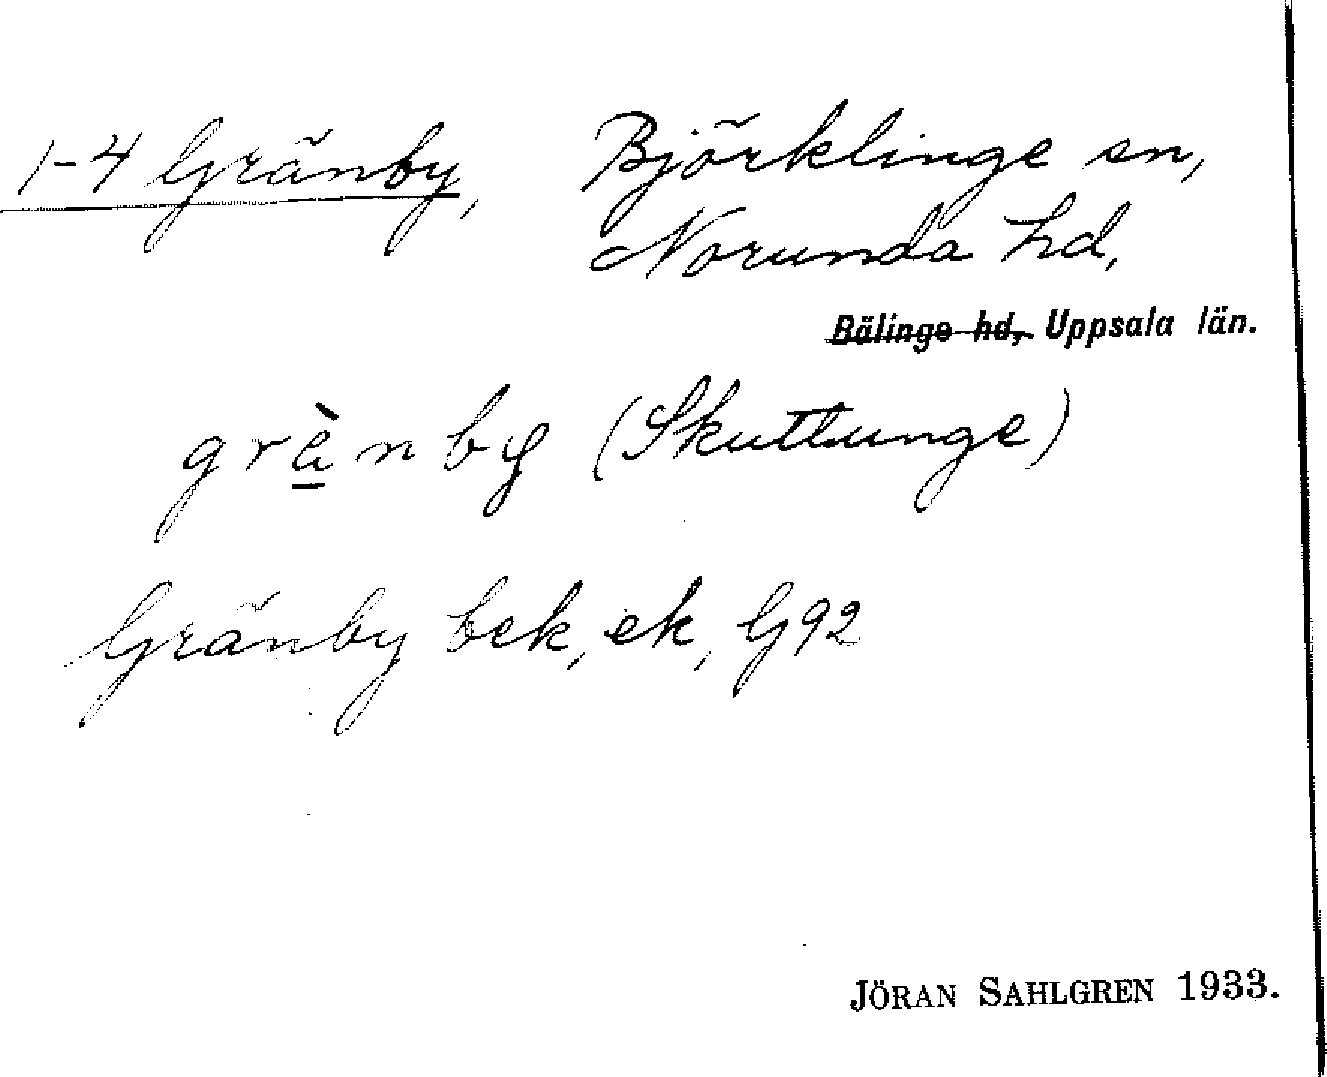 1-4 Gränby, Björklinge sn,
Norunda hd,
Bälinge hd, Uppsala län.
grà̱nby (Skuttunge)
Gränby bek, ek, G92
JÖRAN SAHLGREN 1933.